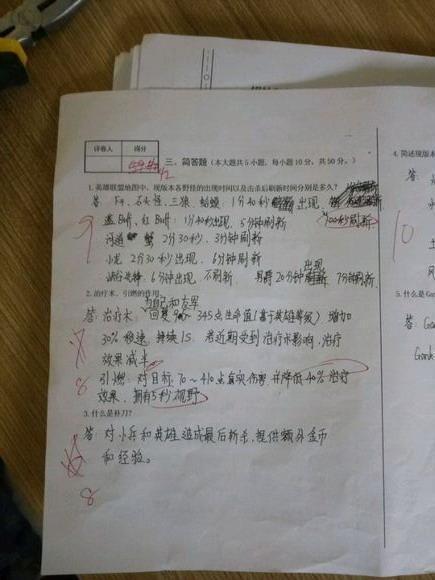 评卷人 得分
三、简答题（本大题共5小题，每小题10分，共50分。）
1.英雄联盟地图中，现版本各野怪的出现时间以及击杀后刷新时间分别是多久？
答：F4、石头怪、三狼、蛤蟆：1分40秒出现，100秒刷新
蓝Buff、红Buff：1分40秒出现，5分钟刷新
河道蟹 2分30秒，3分钟刷新
小龙 2分30秒出现，6分钟刷新
峡谷先锋：6分钟出现 不刷新 男爵20分钟出现 7分钟刷新
2.治疗术、引燃的作用
答：治疗术：为自己和友军回复90～345点生命值（基于英雄等级）增加
30%移速，持续1S. 若近期受到治疗术影响，治疗
效果减半
引燃：对目标70～410点真实伤害并降低40%治疗
效果，拥有5秒视野
3.什么是补刀？
答：对小兵和英雄造成最后斩杀，提供额外金币
和经验。
9
8
8
10
4.简述现版本
答：
5.什么是G
答：